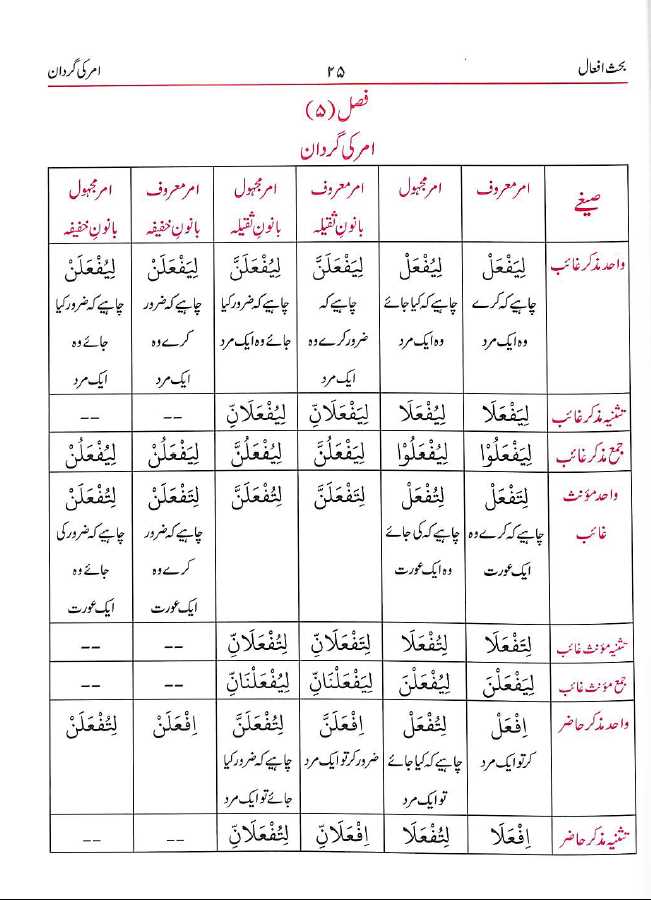 بحث افعال ۲۵ امر کی گردان
فصل (۵)
امر کی گردان
صیغے امر معروف امر مجہول امر معروف بانونِ ثقیلہ امر مجہول بانونِ ثقیلہ امر معروف بانونِ خفیفہ امر مجہول بانونِ خفیفہ
واحد مذکر غائب لِيَفْعَلْ چاہیے کہ کرے وہ ایک مرد لِيُفْعَلْ چاہیے کہ کیا جائے وہ ایک مرد لِيَفْعَلَنَّ چاہیے کہ ضرور کرے وہ ایک مرد لِيُفْعَلَنَّ چاہیے کہ ضرور کیا جائے وہ ایک مرد لِيَفْعَلَنْ چاہیے کہ ضرور کرے وہ ایک مرد لِيُفْعَلَنْ چاہیے کہ ضرور کیا جائے وہ ایک مرد
تثنیہ مذکر غائب لِيَفْعَلَا لِيُفْعَلَا لِيَفْعَلَانِّ لِيُفْعَلَانِّ -- --
جمع مذکر غائب لِيَفْعَلُوْا لِيُفْعَلُوْا لِيَفْعَلُنَّ لِيُفْعَلُنَّ لِيَفْعَلُنْ لِيُفْعَلُنْ
واحد مؤنث غائب لِتَفْعَلْ چاہیے کہ کرے وہ ایک عورت لِتُفْعَلْ چاہیے کہ کی جائے وہ ایک عورت لِتَفْعَلَنَّ لِتُفْعَلَنَّ لِتَفْعَلَنْ چاہیے کہ ضرور کرے وہ ایک عورت لِتُفْعَلَنْ چاہیے کہ ضرور کی جائے وہ ایک عورت
تثنیہ مؤنث غائب لِتَفْعَلَا لِتُفْعَلَا لِتَفْعَلَانِّ لِتُفْعَلَانِّ -- --
جمع مؤنث غائب لِيَفْعَلْنَ لِيُفْعَلْنَ لِيَفْعَلْنَانِّ لِيُفْعَلْنَانِّ -- --
واحد مذکر حاضر اِفْعَلْ کر تو ایک مرد لِتُفْعَلْ چاہیے کہ کیا جائے تو ایک مرد اِفْعَلَنَّ ضرور کر تو ایک مرد لِتُفْعَلَنَّ چاہیے کہ ضرور کیا جائے تو ایک مرد اِفْعَلَنْ لِتُفْعَلَنْ
تثنیہ مذکر حاضر اِفْعَلَا لِتُفْعَلَا اِفْعَلَانِّ لِتُفْعَلَانِّ -- --